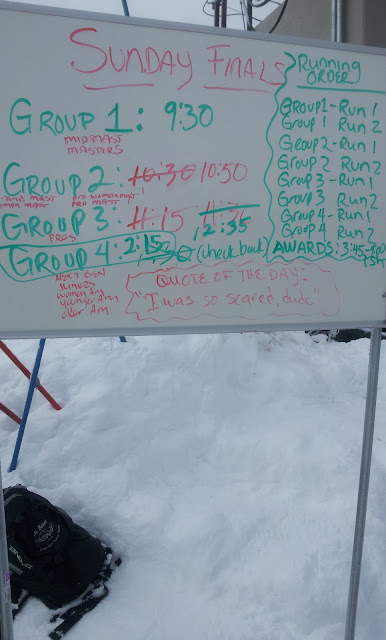 SUNDAY FINALS
GROUP 1: 9:30
MIDMAST
MASTERS
GROUP 2: 10:30 10:50
PRO MAST
GROUP 3: 11:15 12:35
PROS
GROUP 4: 2:15 (check back)
NEXT GEN
JUNIORS
women Am
younger Am
older Am
QUOTE OF THE DAY:
"I was so scared, dude"
RUNNING
ORDER
GROUP1 - RUN 1
GROUP 1 RUN 2
GROUP 2 - RUN 1
GROUP 2 RUN 2
GROUP 3 - RUN 1
GROUP 3 RUN 2
GROUP 4 - RUN 1
GROUP 4 RUN 2
AWARDS: 3:45-4:00
ISH